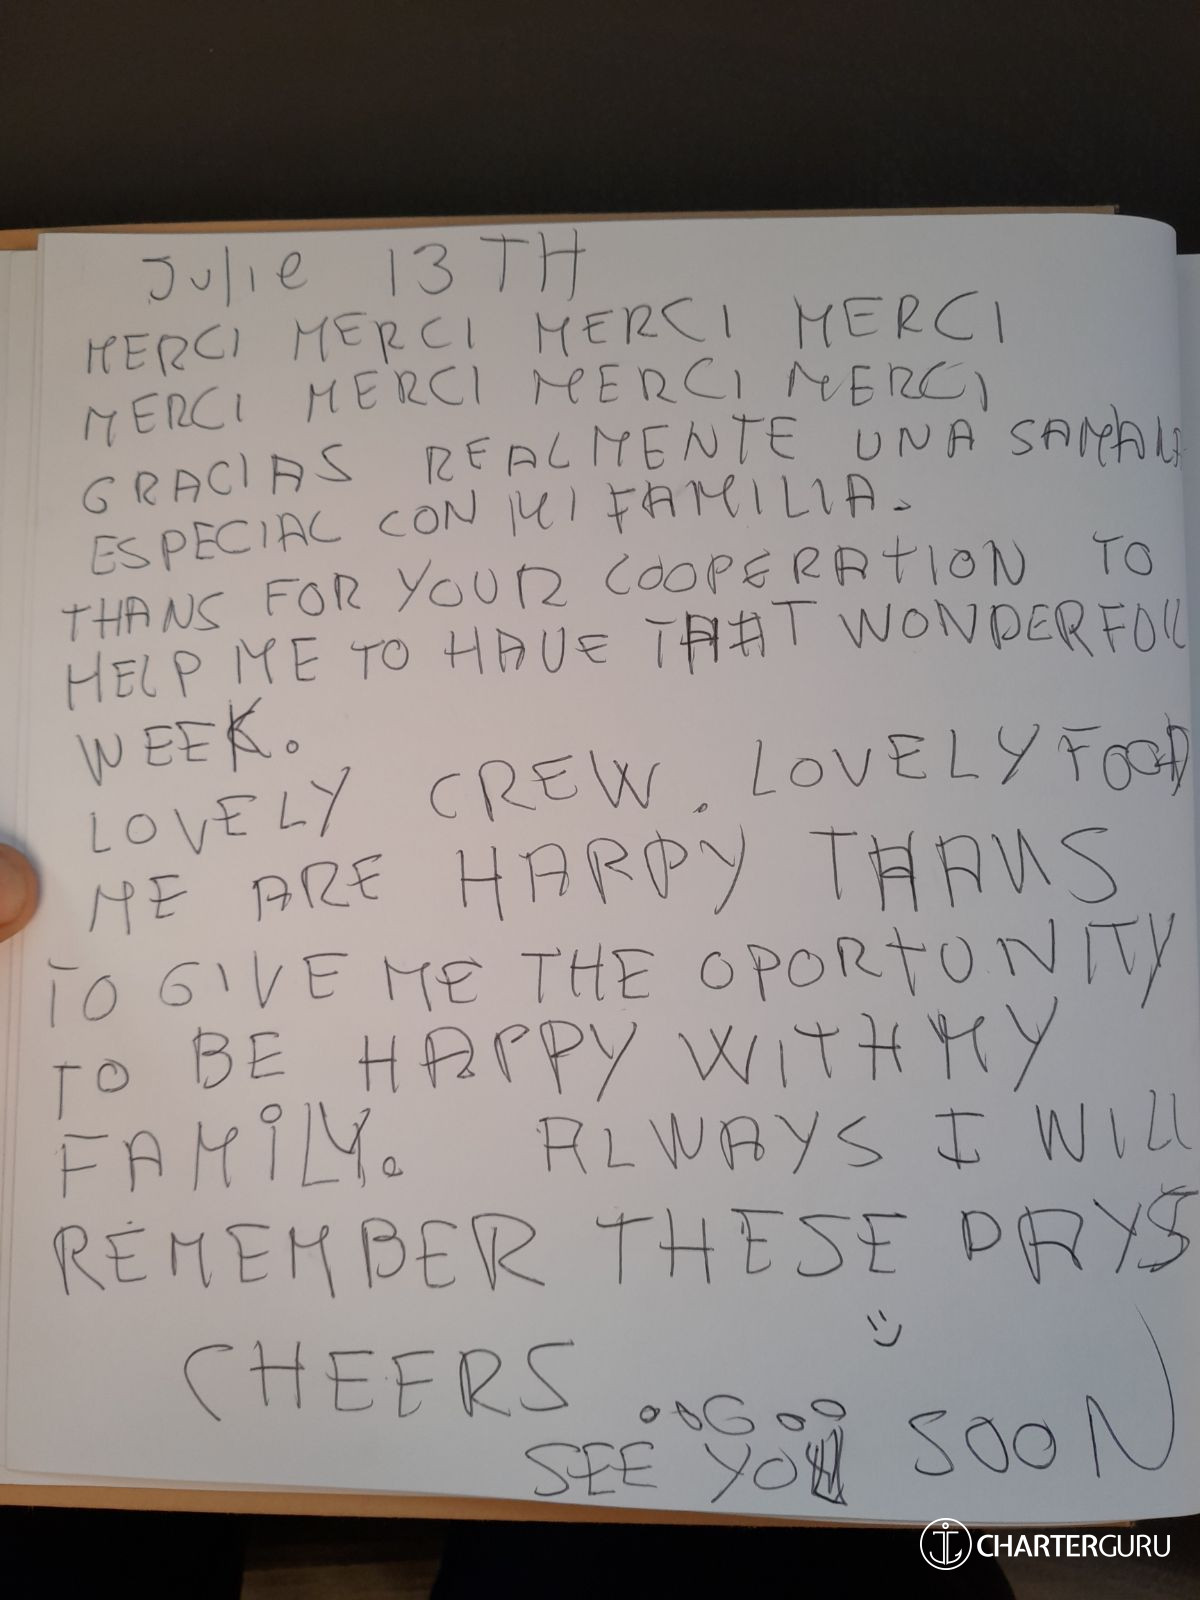 Julie 13TH
MERCI MERCI MERCI MERCI
MERCI MERCI MERCI MERCI
GRACIAS REALMENTE UNA SAMANA
ESPECIAL CON MI FAMILIA.
THANS FOR YOUR COOPERATION TO
HELP ME TO HAVE THAT WONDERFOLL
WEEK.
LOVELY CREW. LOVELY FOOD
ME ARE HAPPY THANS
TO GIVE ME THE OPORTUNITY
TO BE HAPPY WITH MY
FAMILY. ALWAYS I WILL
REMEMBER THESE DAYS
CHEERS
SEE YOU SOON
CHARTERGURU